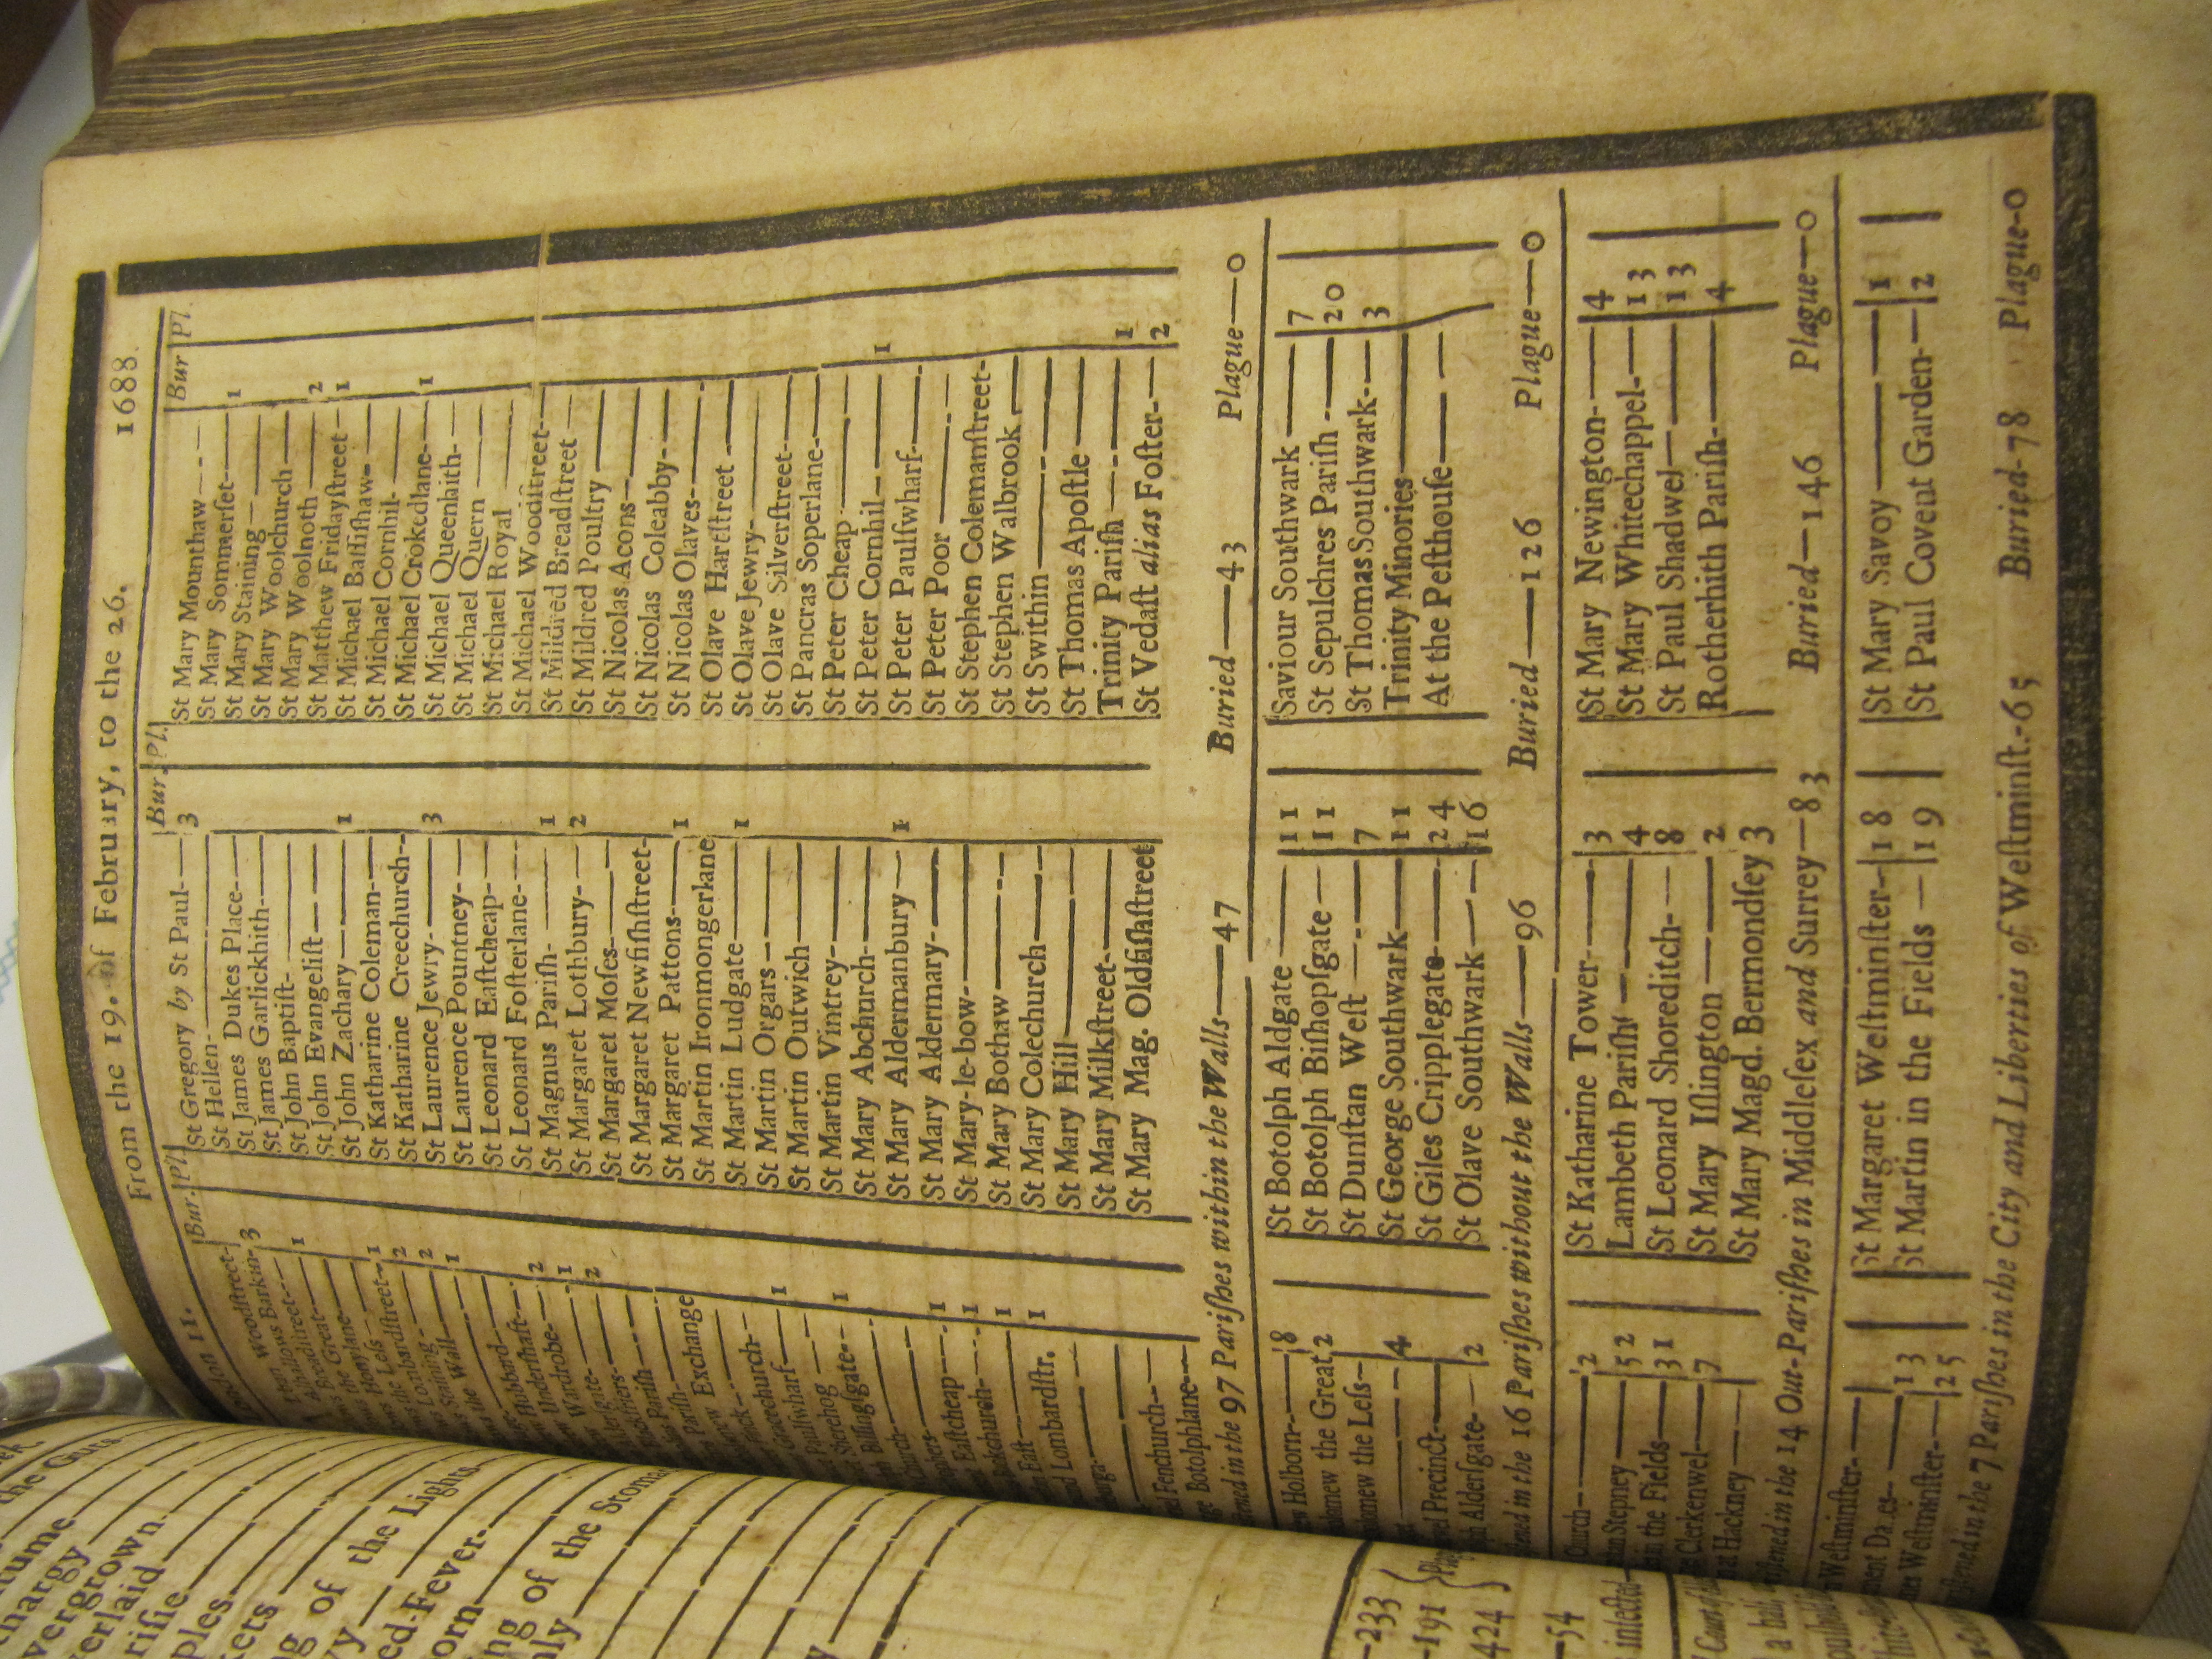 From the 19. of February, to the 26. 1688.
Bur. Pl.
Woodſtreet-
Barkin- 3
Breadſtreet--- 1
Great
Honylane
Leſs — 1
Lombardſtreet- 2
Staining - 2
the Wall 1
Hubbard
Underſhaft- 2
Wardrobe- 1
2
Pariſh
Pariſh-
Exchange
Gracechurch- 1
Paulſwharf
Sherehog 1
Billingſgate
church
Eaſtcheap 1
1
Eaſt 1
Lombardſtr. 1
Fenchurch
Botolphlane
Bur. Pl.
St Gregory by St Paul- 3
St Hellen
St James Dukes Place
St James Garlickhith
St John Baptiſt
St John Evangeliſt
St John Zachary 1
St Katharine Coleman
St Katharine Creechurch
St Laurence Jewry 3
St Laurence Pountney
St Leonard Eaſtcheap
St Leonard Foſterlane
St Magnus Pariſh 1
St Margaret Lothbury 2
St Margaret Moſes
St Margaret Newfiſhſtreet
St Margaret Pattons 1
St Martin Ironmongerlane
St Martin Ludgate 1
St Martin Orgars
St Martin Outwich
St Martin Vintrey
St Mary Abchurch
St Mary Aldermanbury 1
St Mary Aldermary
St Mary-le-bow
St Mary Bothaw
St Mary Colechurch
St Mary Hill
St Mary Milkſtreet
St Mary Mag. Oldfiſhſtreet
Bur Pl.
St Mary Mounthaw
St Mary Sommerſet 1
St Mary Staining
St Mary Woolchurch
St Mary Woolnoth 2
St Matthew Fridayſtreet 1
St Michael Baſſiſhaw
St Michael Cornhil
St Michael Crokedlane 1
St Michael Queenhith
St Michael Quern
St Michael Royal
St Michael Woodſtreet
St Mildred Breadſtreet
St Mildred Poultry
St Nicolas Acons
St Nicolas Coleabby
St Nicolas Olaves
St Olave Hartſtreet
St Olave Jewry
St Olave Silverſtreet
St Pancras Soperlane
St Peter Cheap
St Peter Cornhil 1
St Peter Paulſwharf
St Peter Poor
St Stephen Colemanſtreet
St Stephen Walbrook
St Swithin
St Thomas Apoſtle
Trinity Pariſh 1
St Vedaſt alias Foſter 2
in the 97 Pariſhes within the Walls—47 Buried—43 Plague—0
Holborn 8
the Great 2
the Leſs
4
Precinct
Alderſgate 2
St Botolph Aldgate 11
St Botolph Biſhopſgate 11
St Dunſtan Weſt 7
St George Southwark 11
St Giles Cripplegate 24
St Olave Southwark 16
Saviour Southwark 7
St Sepulchres Pariſh 20
St Thomas Southwark 3
Trinity Minories
At the Peſthouſe
in the 16 Pariſhes without the Walls—96 Buried—126 Plague—0
Church 2
Stepney 52
in the Fields 31
Clerkenwel 7
at Hackney
St Katharine Tower 3
Lambeth Pariſh 4
St Leonard Shoreditch 8
St Mary Iſlington 2
St Mary Magd. Bermondſey 3
St Mary Newington 4
St Mary Whitechappel 13
St Paul Shadwel 13
Rotherhith Pariſh 4
in the 14 Out-Pariſhes in Middleſex and Surrey—83 Buried—146 Plague—0
Weſtminſter
13
Weſtminſter 25
St Margaret Weſtminſter 18
St Martin in the Fields 19
St Mary Savoy 1
St Paul Covent Garden 2
in the 7 Pariſhes in the City and Liberties of Weſtminſt.-65 Buried-78 Plague-0
the Guts
vergrown
of the Lights
of the Stomach
233
191
424
54